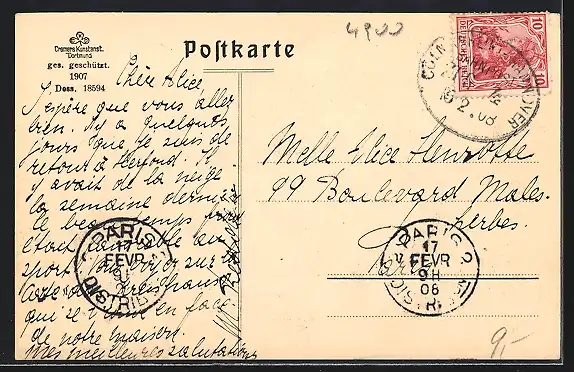 4900
Cramers Kunstanst.
Dortmund
ges. geschützt.
1907
Dess. 18594
Postkarte
DEUTSCHES REICH
10
10
CÖLN HANNOVER
16 2 08
Chère Alice,
J'espère que vous allez
bien. Il y a quelques
jours que je suis de
retour à Herford. Il
y avait de la neige
la semaine dernière
le beau temps
était au
sport. Vous voyez sur la
carte
qui se en face
de notre maison.
Mes meilleures salutations
Melle Alice Henrotte
99 Boulevard Males-
herbes
Paris
PARIS
17
FEVR
08
DISTRIB
PARIS
17
FEVR
9H
08
DISTRIB
9,-